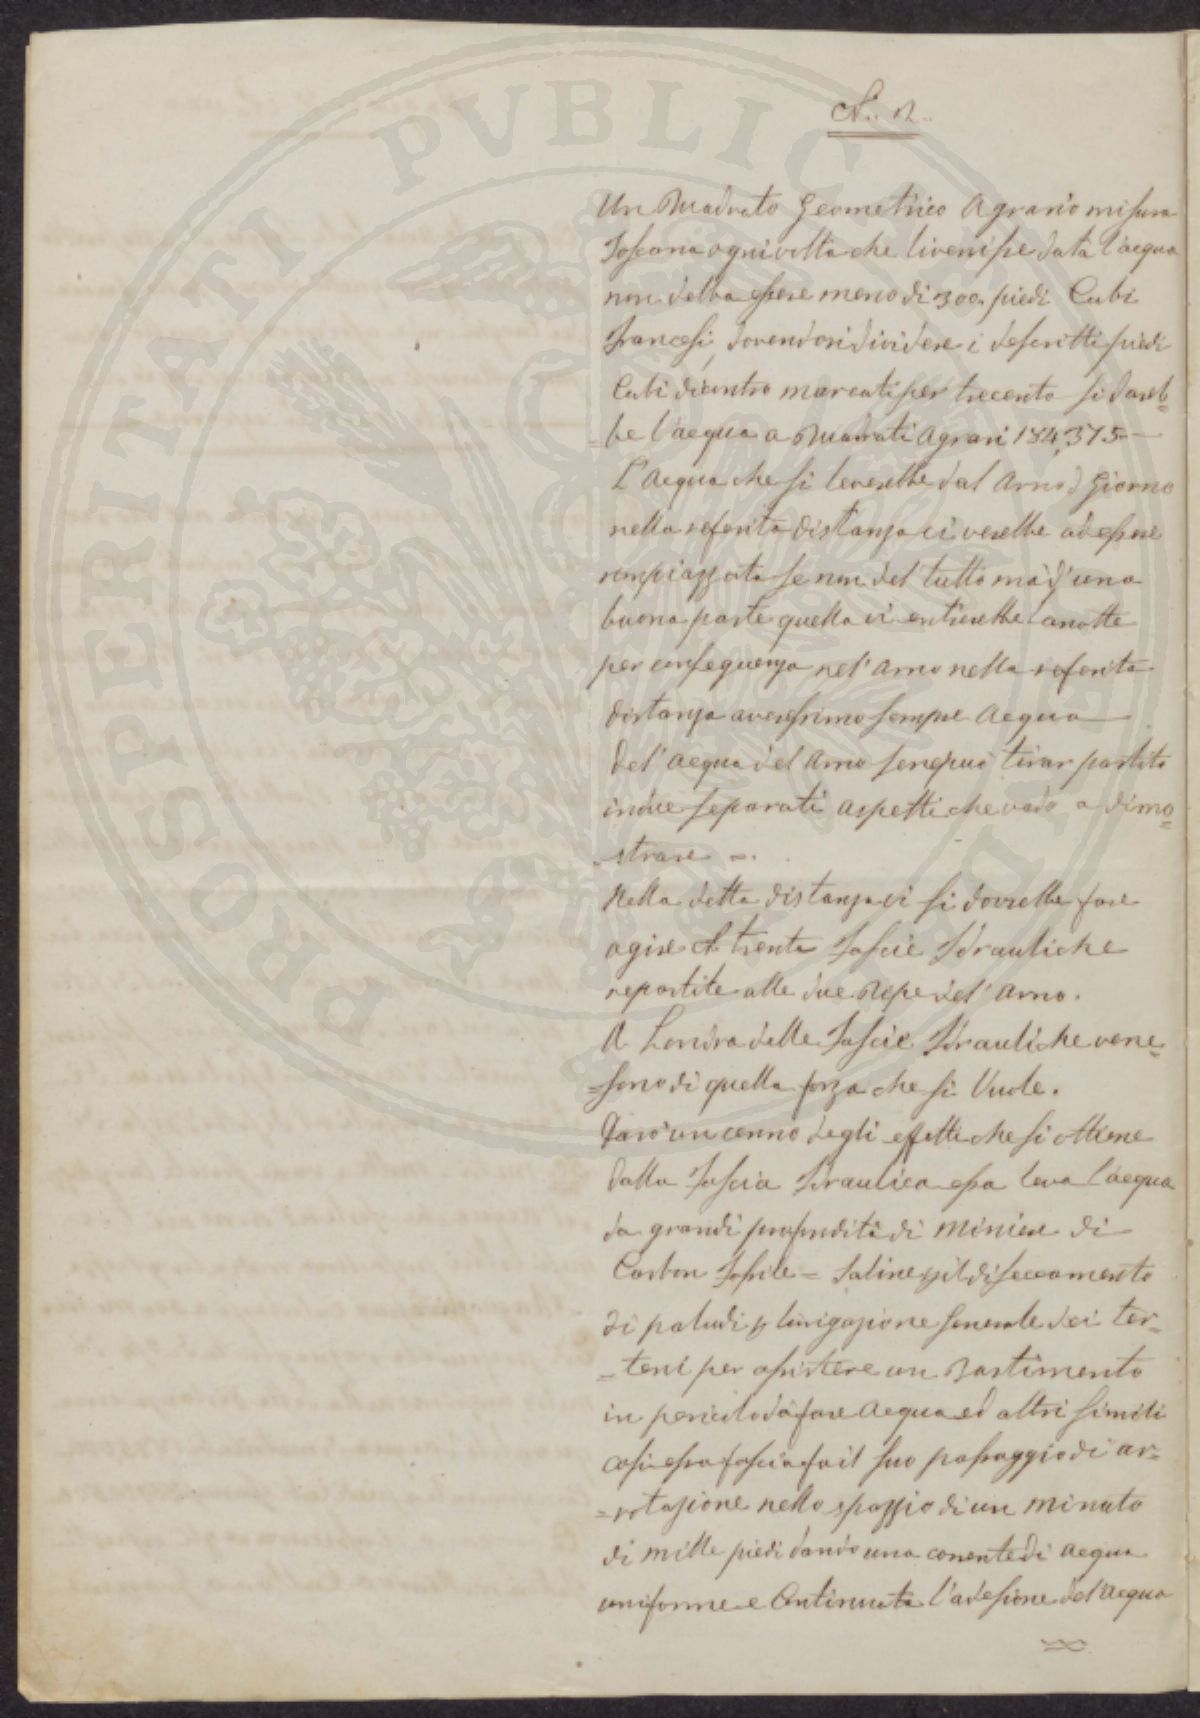 PROSPERITATI PVBLICAE
N. 2..
Un Quadrato Geometrico Agrario misura
Toscana ogni volta che li venisse data l'acqua
non debba essere meno di 300 piedi Cubi
francesi, dovendosi dividere i descritti piedi
Cubi dicontro marcati per trecento si dareb=
=be l'acqua a Quadrati Agrari 184,375—
L'Acqua che si leverebbe dal Arno di Giorno
nella referita distanza ci verebbe ad essere
rimpiazzata se non del tutto ma d'una
buona parte quella ci entrerebbe anotte
per conseguenza nel' Arno nella referita
distanza averessimo sempre Acqua—
Del' Acqua del Arno sene può tirar partito
in due separati aspetti che vado a dimo=
strare =.
Nella detta distanza ci si dovrebbe fare
agire N. trenta Fascie Idrauliche
repartite alle due Repe del' Arno.
A Londra delle Fascie Idrauliche vene=
=sono di quella forza che si Vuole.
Darò un cenno degli effetti che si ottiene
dalla Fascia Idraulica essa leva l'acqua
da grandi profondità di Miniere di
Carbon Fossile = Saline pil disseccamento
di paludi p l'irrigazione Generale dei ter=
=reni per assistere un Bastimento
in pericolo da fare Acqua ed altri simili
casi essa fascia fa il suo passaggio di ar=
=rotazione nello spazzio di un Minuto
di Mille piedi dando una corrente di Acqua
uniforme e Continuata l'adesione del'Acqua